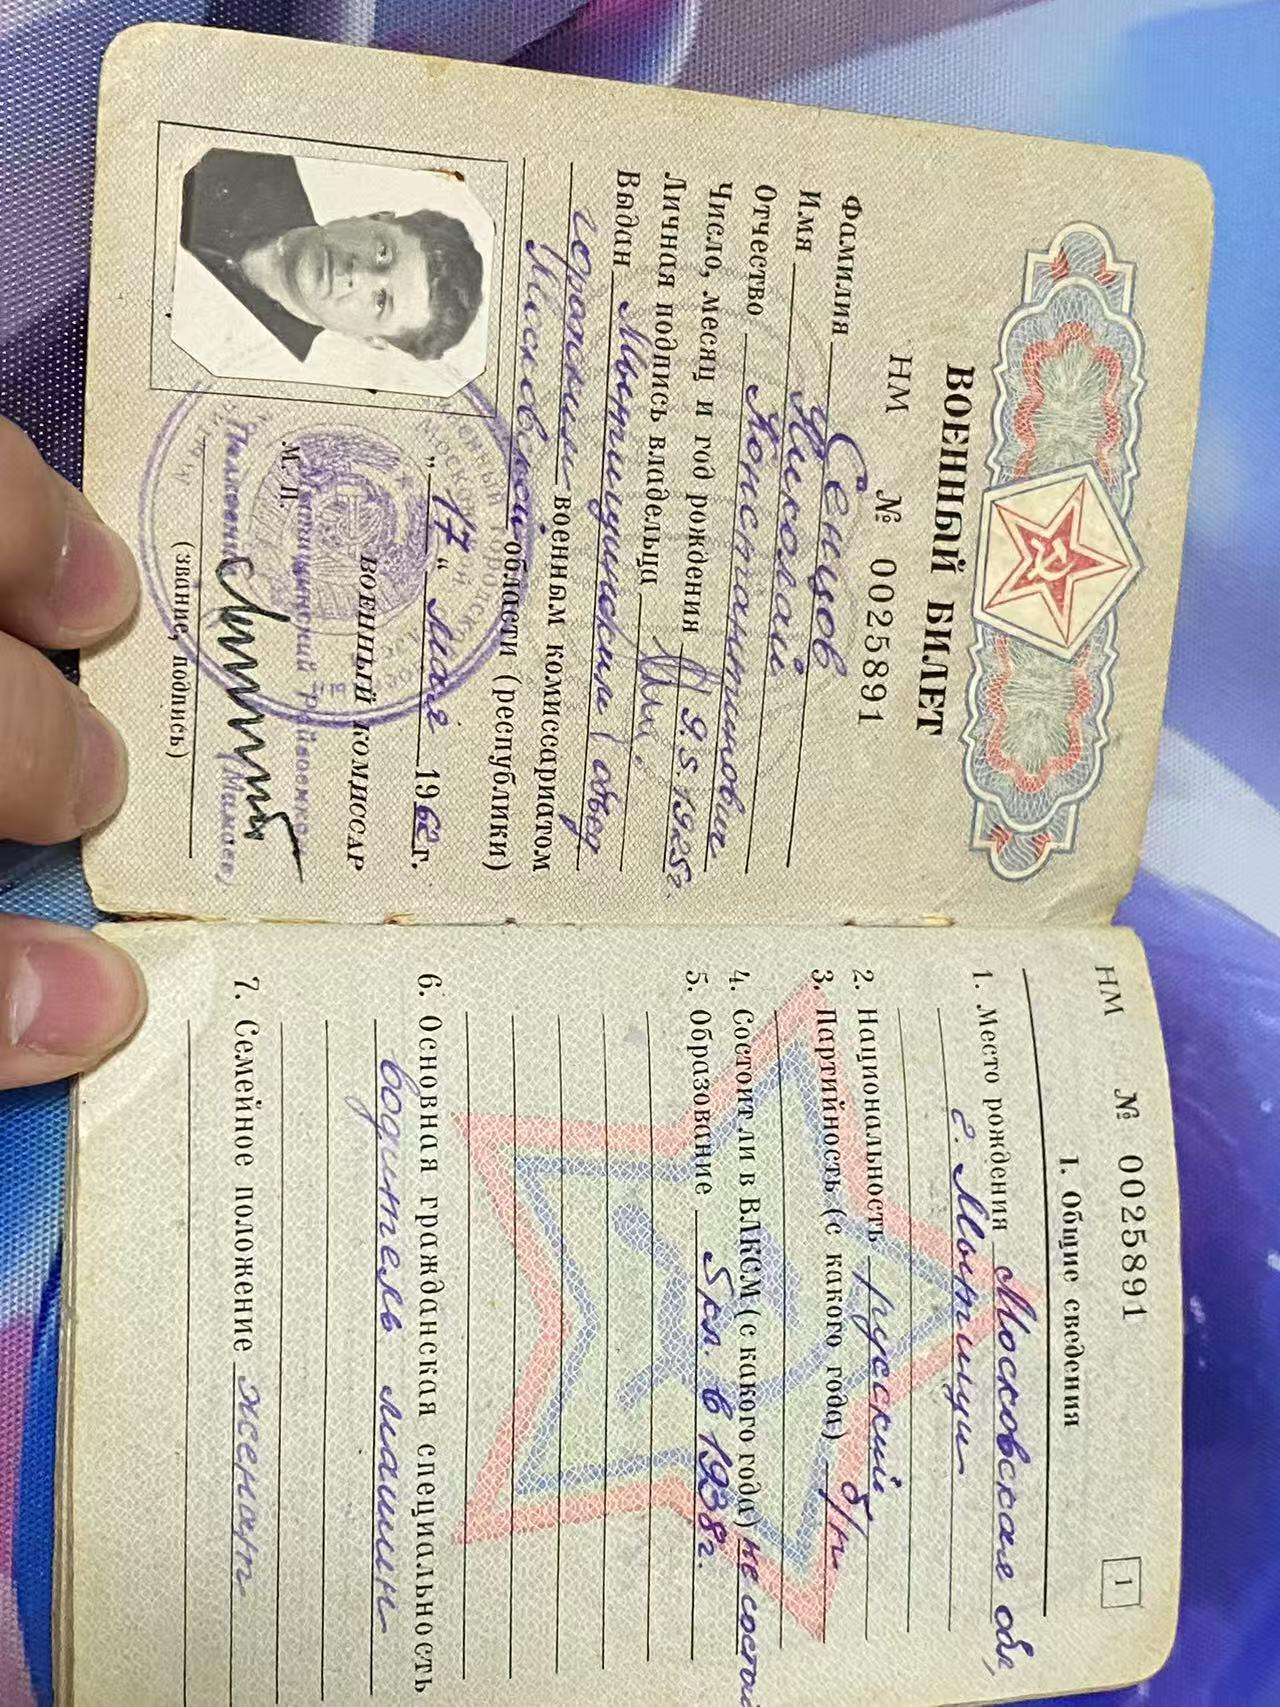 ВОЕННЫЙ БИЛЕТ
НМ № 0025891
Фамилия Сенцов
Имя Николай
Отчество Константинович
Число, месяц и год рождения 9.5.1925г.
Личная подпись владельца
Выдан Мытищинским
городским военным комиссариатом
Московской области (республики)
„17“ Мая 1962г.
ВОЕННЫЙ КОМИССАР
М. П.
(звание, подпись)
НМ № 0025891 1
1. Общие сведения
1. Место рождения Московская обл,
г. Мытищи
2. Национальность русский
3. Партийность (с какого года) б/п
4. Состоит ли в ВЛКСМ (с какого года) не состои
5. Образование 5 кл. в 1938г.
6. Основная гражданская специальность
водитель машин
7. Семейное положение женат